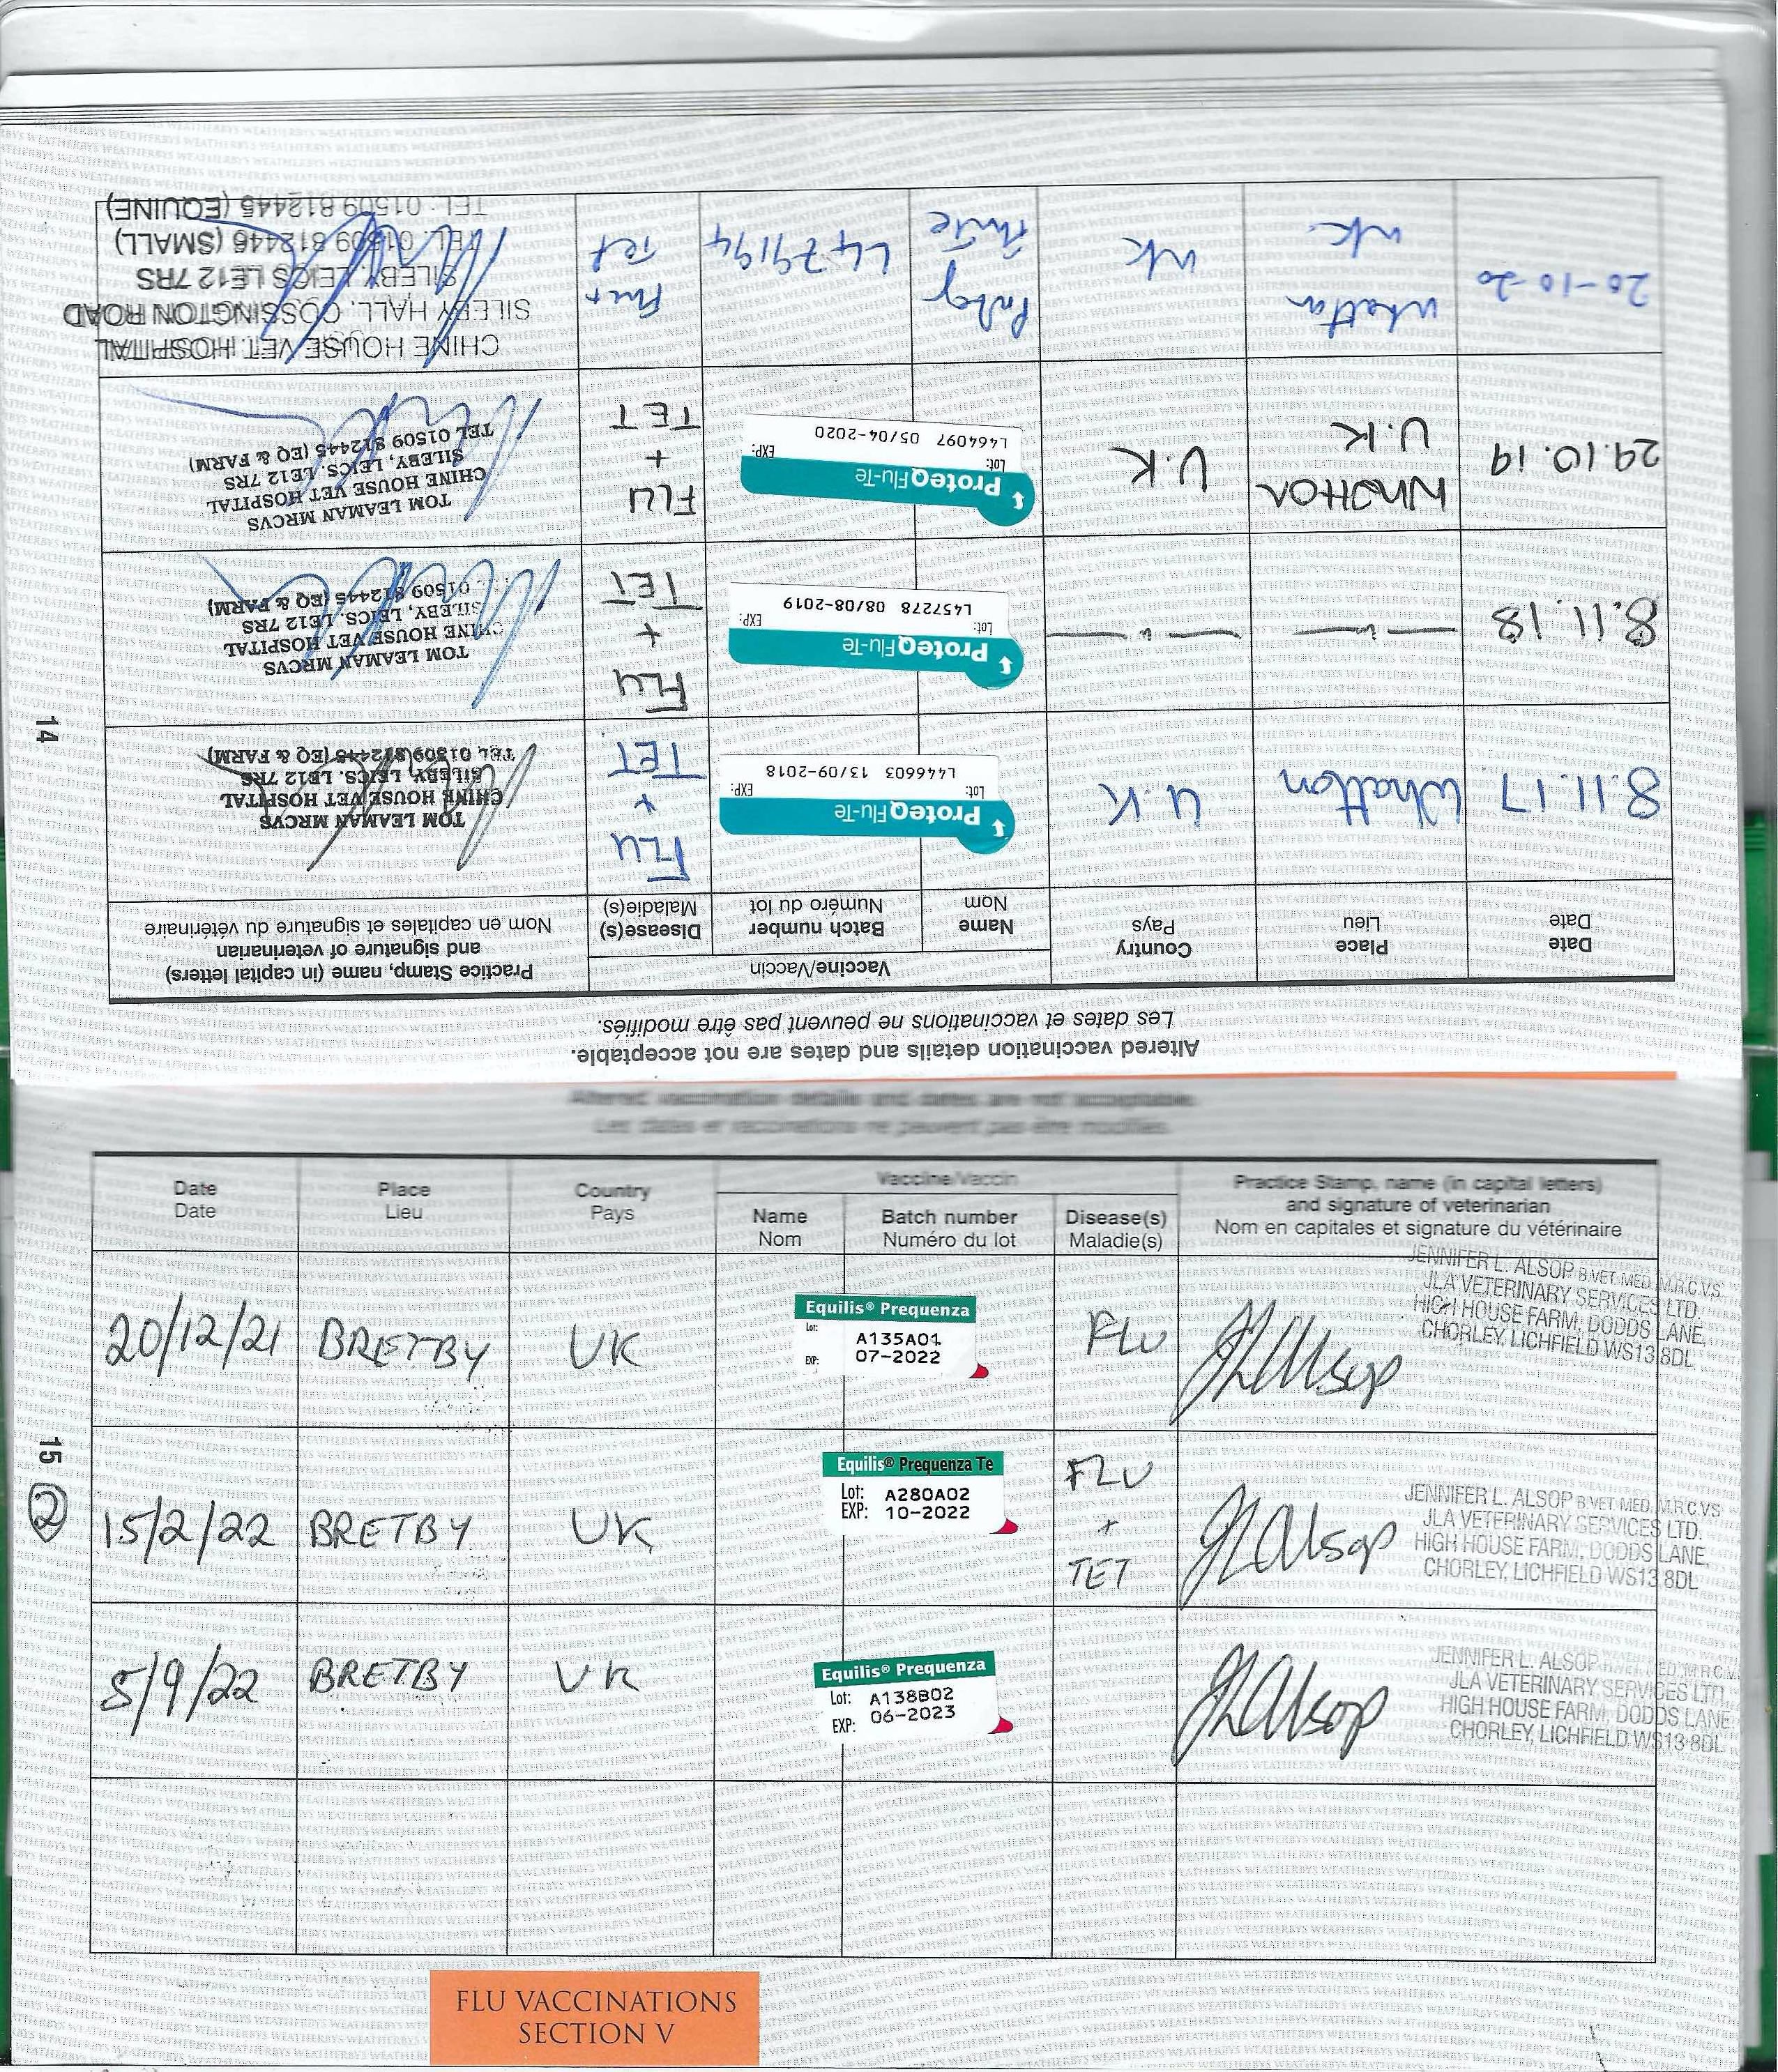 Altered vaccination details and dates are not acceptable.
Les dates et vaccinations ne peuvent pas être modifiées.
Date
Date
Place
Lieu
Country
Pays
Vaccine/Vaccin
Name
Nom
Batch number
Numéro du lot
Disease(s)
Maladie(s)
Practice Stamp, name (in capital letters)
and signature of veterinarian
Nom en capitales et signature du vétérinaire
8.11.17
Whatton
U.K
ProteqFlu-Te
Lot:
EXP:
L446603 13/09-2018
FLU
+
TET
TOM LEAMAN MRCVS
CHINE HOUSE VET HOSPITAL
SILEBY, LEICS. LE12 7RS
TEL 01509 812445 (EQ & FARM)
8.11.18
— " —
— " —
ProteqFlu-Te
Lot:
EXP:
L457278 08/08-2019
FLU
+
TET
TOM LEAMAN MRCVS
CHINE HOUSE VET HOSPITAL
SILEBY, LEICS, LE12 7RS
01509 812445 (EQ & FARM)
29.10.19
WHATTON
U.K
U.K
ProteqFlu-Te
Lot:
EXP:
L464097 05/04-2020
FLU
+
TET
TOM LEAMAN MRCVS
CHINE HOUSE VET HOSPITAL
SILEBY, LEICS. LE12 7RS
TEL 01509 812445 (EQ & FARM)
20-10-20
Whatton
UK
UK
L479194
Tet
CHINE HOUSE VET. HOSPITAL
SILEBY HALL, COSSINGTON ROAD
SILEBY, LEICS LE12 7RS
TEL: 01509 812446 (SMALL)
TEL: 01509 812445 (EQUINE)
14
Altered vaccination details and dates are not acceptable.
Les dates et vaccinations ne peuvent pas être modifiées.
Date
Date
Place
Lieu
Country
Pays
Vaccine/Vaccin
Name
Nom
Batch number
Numéro du lot
Disease(s)
Maladie(s)
Practice Stamp, name (in capital letters)
and signature of veterinarian
Nom en capitales et signature du vétérinaire
20/12/21
BRETBY
UK
Equilis® Prequenza
Lot:
A135A01
EXP:
07-2022
FLU
JLAlsop
JENNIFER L. ALSOP B.VET.MED. M.R.C.V.S
JLA VETERINARY SERVICES LTD.
HIGH HOUSE FARM, DODDS LANE,
CHORLEY, LICHFIELD WS13 8DL
15/2/22
BRETBY
UK
Equilis® Prequenza Te
Lot: A280A02
EXP: 10-2022
FLU
+
TET
JLAlsop
JENNIFER L. ALSOP B.VET.MED. M.R.C.V.S
JLA VETERINARY SERVICES LTD.
HIGH HOUSE FARM, DODDS LANE,
CHORLEY, LICHFIELD WS13 8DL
5/9/22
BRETBY
UK
Equilis® Prequenza
Lot: A138B02
EXP: 06-2023
JLAlsop
JENNIFER L. ALSOP
JLA VETERINARY SERVICES LTD
HIGH HOUSE FARM, DODDS LANE,
CHORLEY, LICHFIELD WS13 8DL
15
2
FLU VACCINATIONS
SECTION V